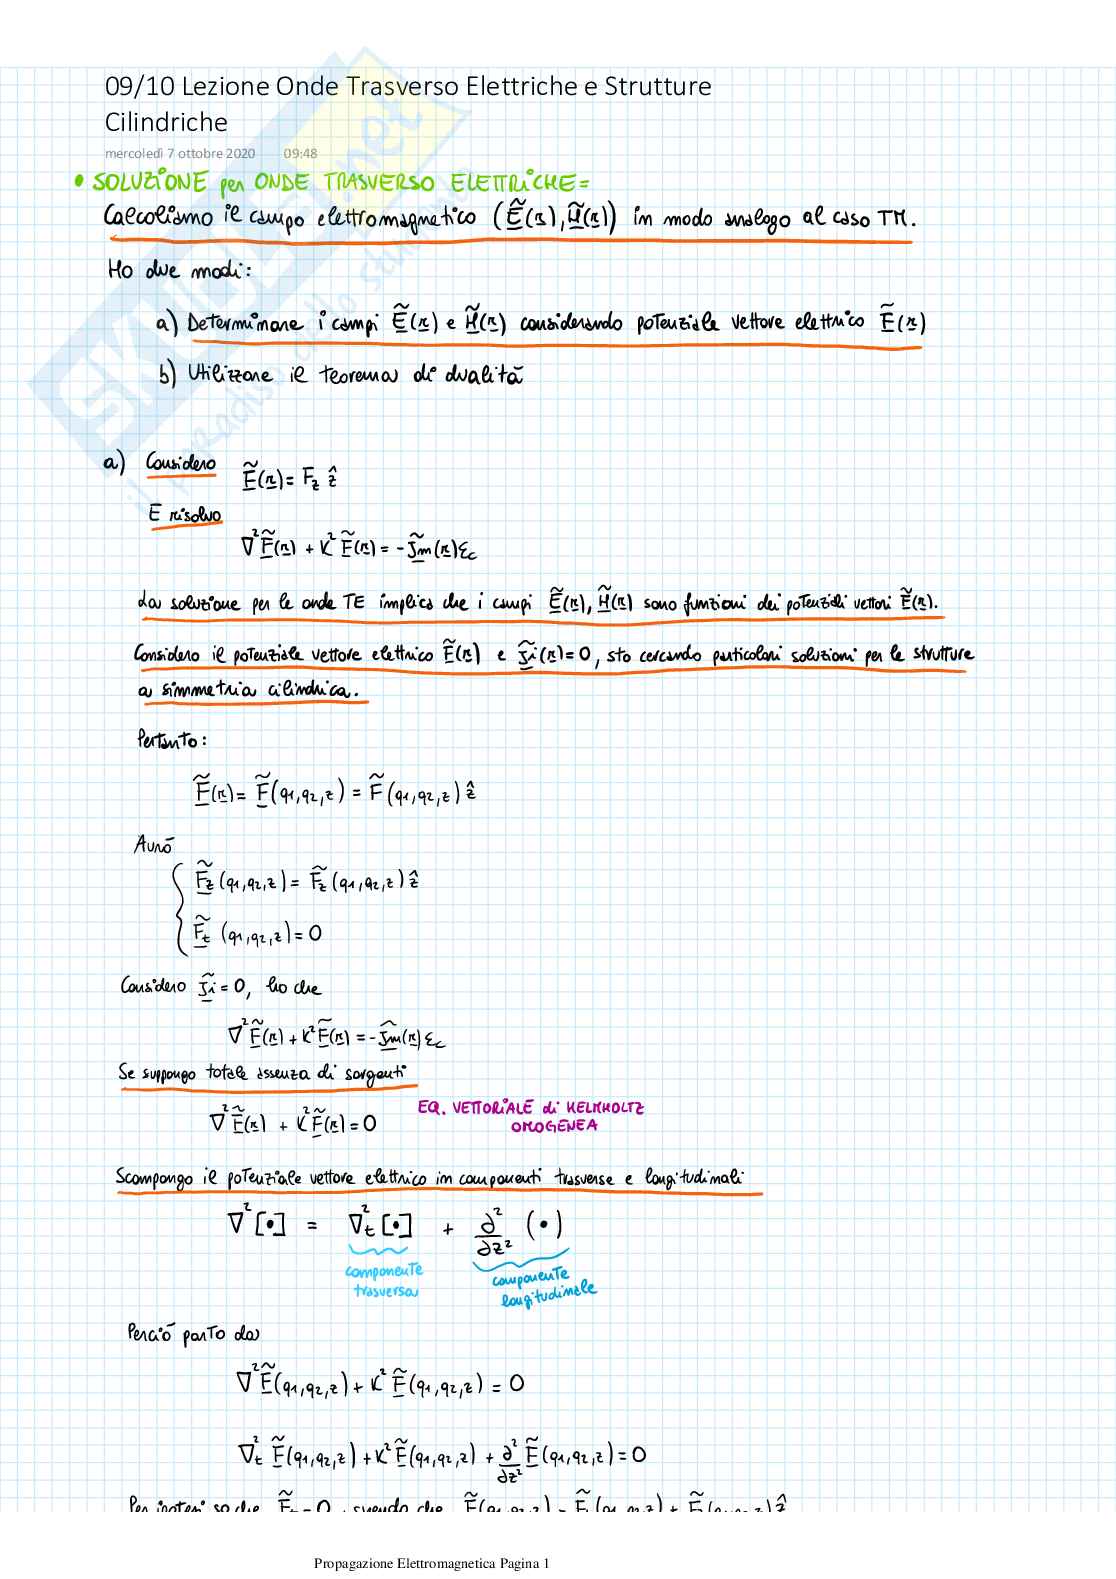 09/10 Lezione Onde Trasverso Elettriche e Strutture
Cilindriche
mercoledì 7 ottobre 2020 09:48
• SOLUZIONE per ONDE TRASVERSO ELETTRICHE=
Calcoliamo il campo elettromagnetico (Ẽ(r),H̃(r)) in modo analogo al caso TM.
Ho due modi:
a) Determinare i campi Ẽ(r) e H̃(r) considerando potenziale vettore elettrico F̃(r)
b) Utilizzare il teorema di dualità
a) Considero F̃(r)= Fz ẑ
E risolvo
∇²F̃(r) + K²F̃(r) = -J̃m(r)εc
La soluzione per le onde TE implica che i campi Ẽ(r), H̃(r) sono funzioni dei potenziali vettori F̃(r).
Considero il potenziale vettore elettrico F̃(r) e J̃i(r)=0, sto cercando particolari soluzioni per le strutture
a simmetria cilindrica.
Pertanto:
F̃(r)= F̃(q1,q2,z) = F̃(q1,q2,z) ẑ
Avrò
{ F̃z(q1,q2,z)= F̃z(q1,q2,z) ẑ
F̃t (q1,q2,z)=0
Considero J̃i=0, ho che
∇²F̃(r)+K²F̃(r) = -J̃m(r)εc
Se suppongo totale assenza di sorgenti
∇²F̃(r) + K²F̃(r)=0 EQ. VETTORIALE di HELMHOLTZ
OMOGENEA
Scompongo il potenziale vettore elettrico in componenti trasverse e longitudinali
∇²[•] = ∇t²[•] + ∂²/∂z² (•)
componente
trasversa
componente
longitudinale
Perciò parto da
∇²F̃(q1,q2,z)+K²F̃(q1,q2,z) = 0
∇t² F̃(q1,q2,z)+K²F̃(q1,q2,z) + ∂²/∂z² F̃(q1,q2,z)=0
Propagazione Elettromagnetica Pagina 1